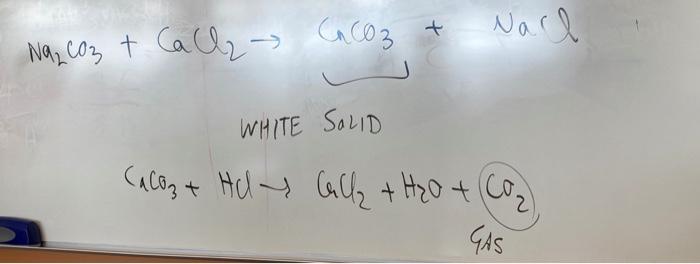 Na₂CO₃ + CaCl₂ → CaCO₃ + NaCl
WHITE SOLID
CaCO₃ + HCl → CaCl₂ + H₂O + CO₂
GAS